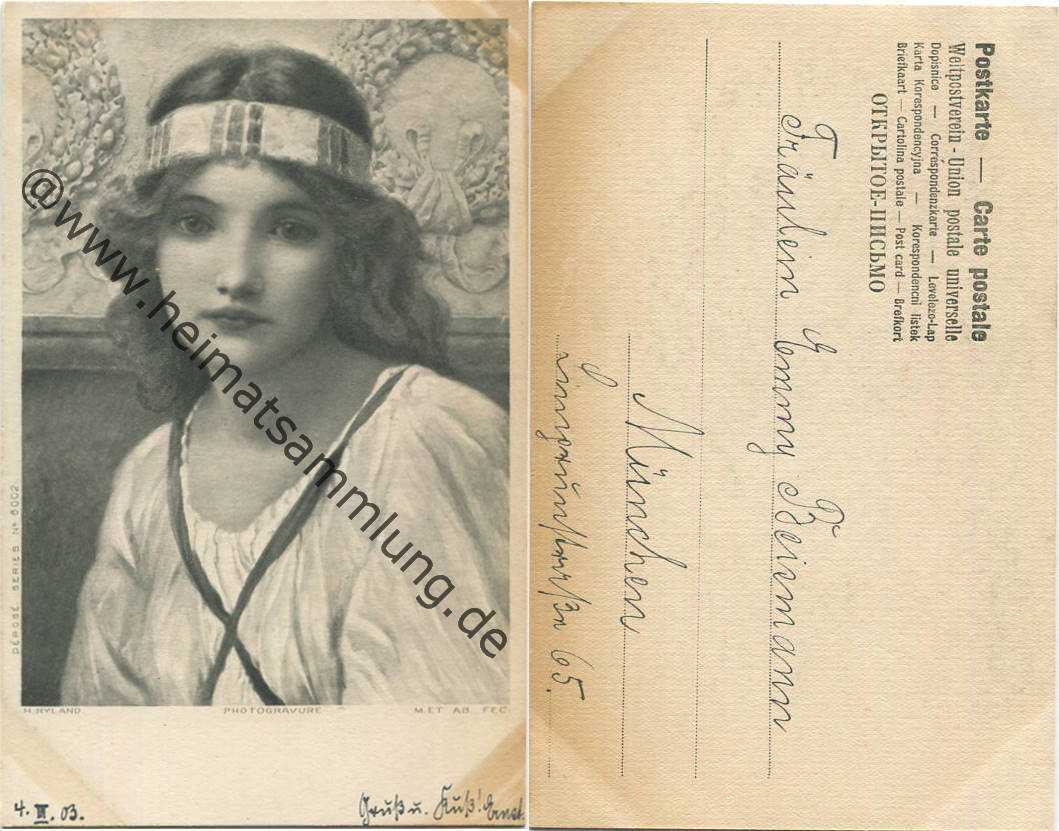 @www.heimatsammlung.de
DÉPOSÉ SERIES Nº 6002
H. RYLAND.
PHOTOGRAVURE
M. ET AB. FEC.
4. III. 03.
Gruß u. Kuß! Ernst.
Postkarte — Carte postale
Weltpostverein - Union postale universelle
Dopisnice — Correspondenzkarte — Levelezo-Lap
Karta Korespondencyjna — Korespondencni listek
Briefkaart — Cartolina postale — Post card — Brefkort
ОТКРЫТОЕ-ПИСЬМО
Fräulein Emmy Beirmann
München
65.